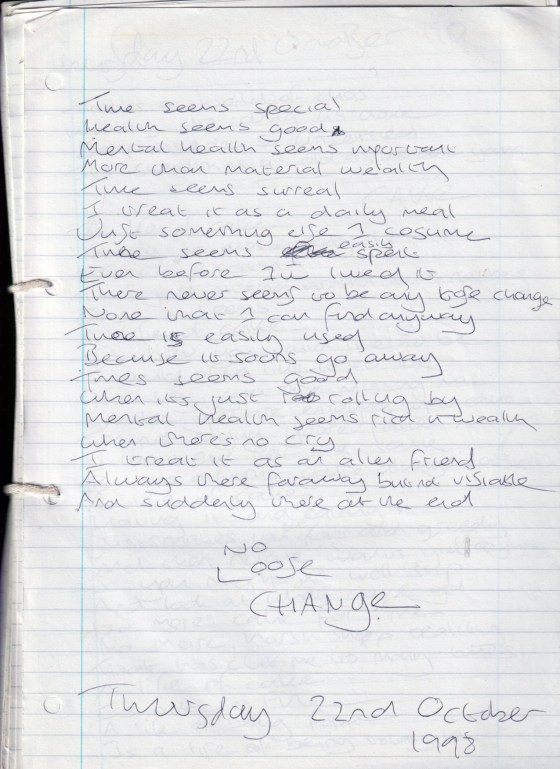 Time seems special
Health seems good
Mental health seems important
More than material wealthy
Time seems surreal
I treat it as a daily meal
Just something else I cosume
Time seems easily spent
Even before I've lived it
There never seems to be any loose change
None that I can find anyway
Time is easily used
Because it soons go away
Times seems good
When it's just rolling by
Mental health seems rich in wealth
When there's no cry
I treat it as an alien friend
Always there faraway but not visiable
And suddenly there at the end
NO
LOOSE
CHANGE
Thursday 22nd October
1998